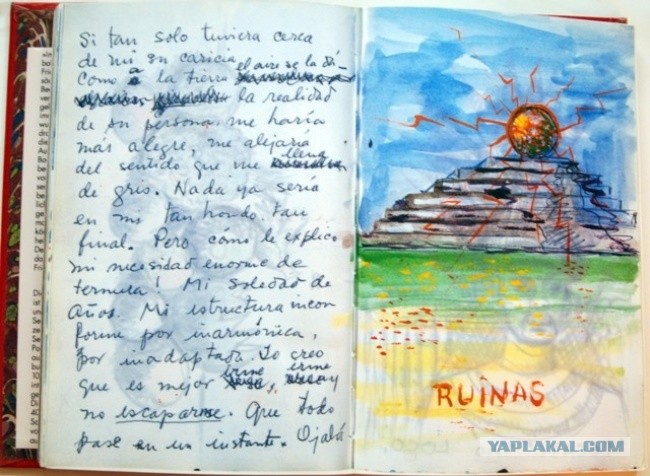 Si tan solo tuviera cerca
de mi su caricia
Como a la tierra el aire se la dá–
la realidad
de su persona, me haría
mas alegre, me alejaría
del sentido que me llena
de gris. Nada ya sería
en mi tan hondo, tan
final. Pero cómo le explico
mi necesidad enorme de
ternura! Mi soledad de
años. Mi estructura incon
forme por inarmónica,
por inadaptada. Yo creo
que es mejor irme, irme y
no escaparme. Que todo
pase en un instante. Ojalá.
RUINAS
YAPLAKAL.COM